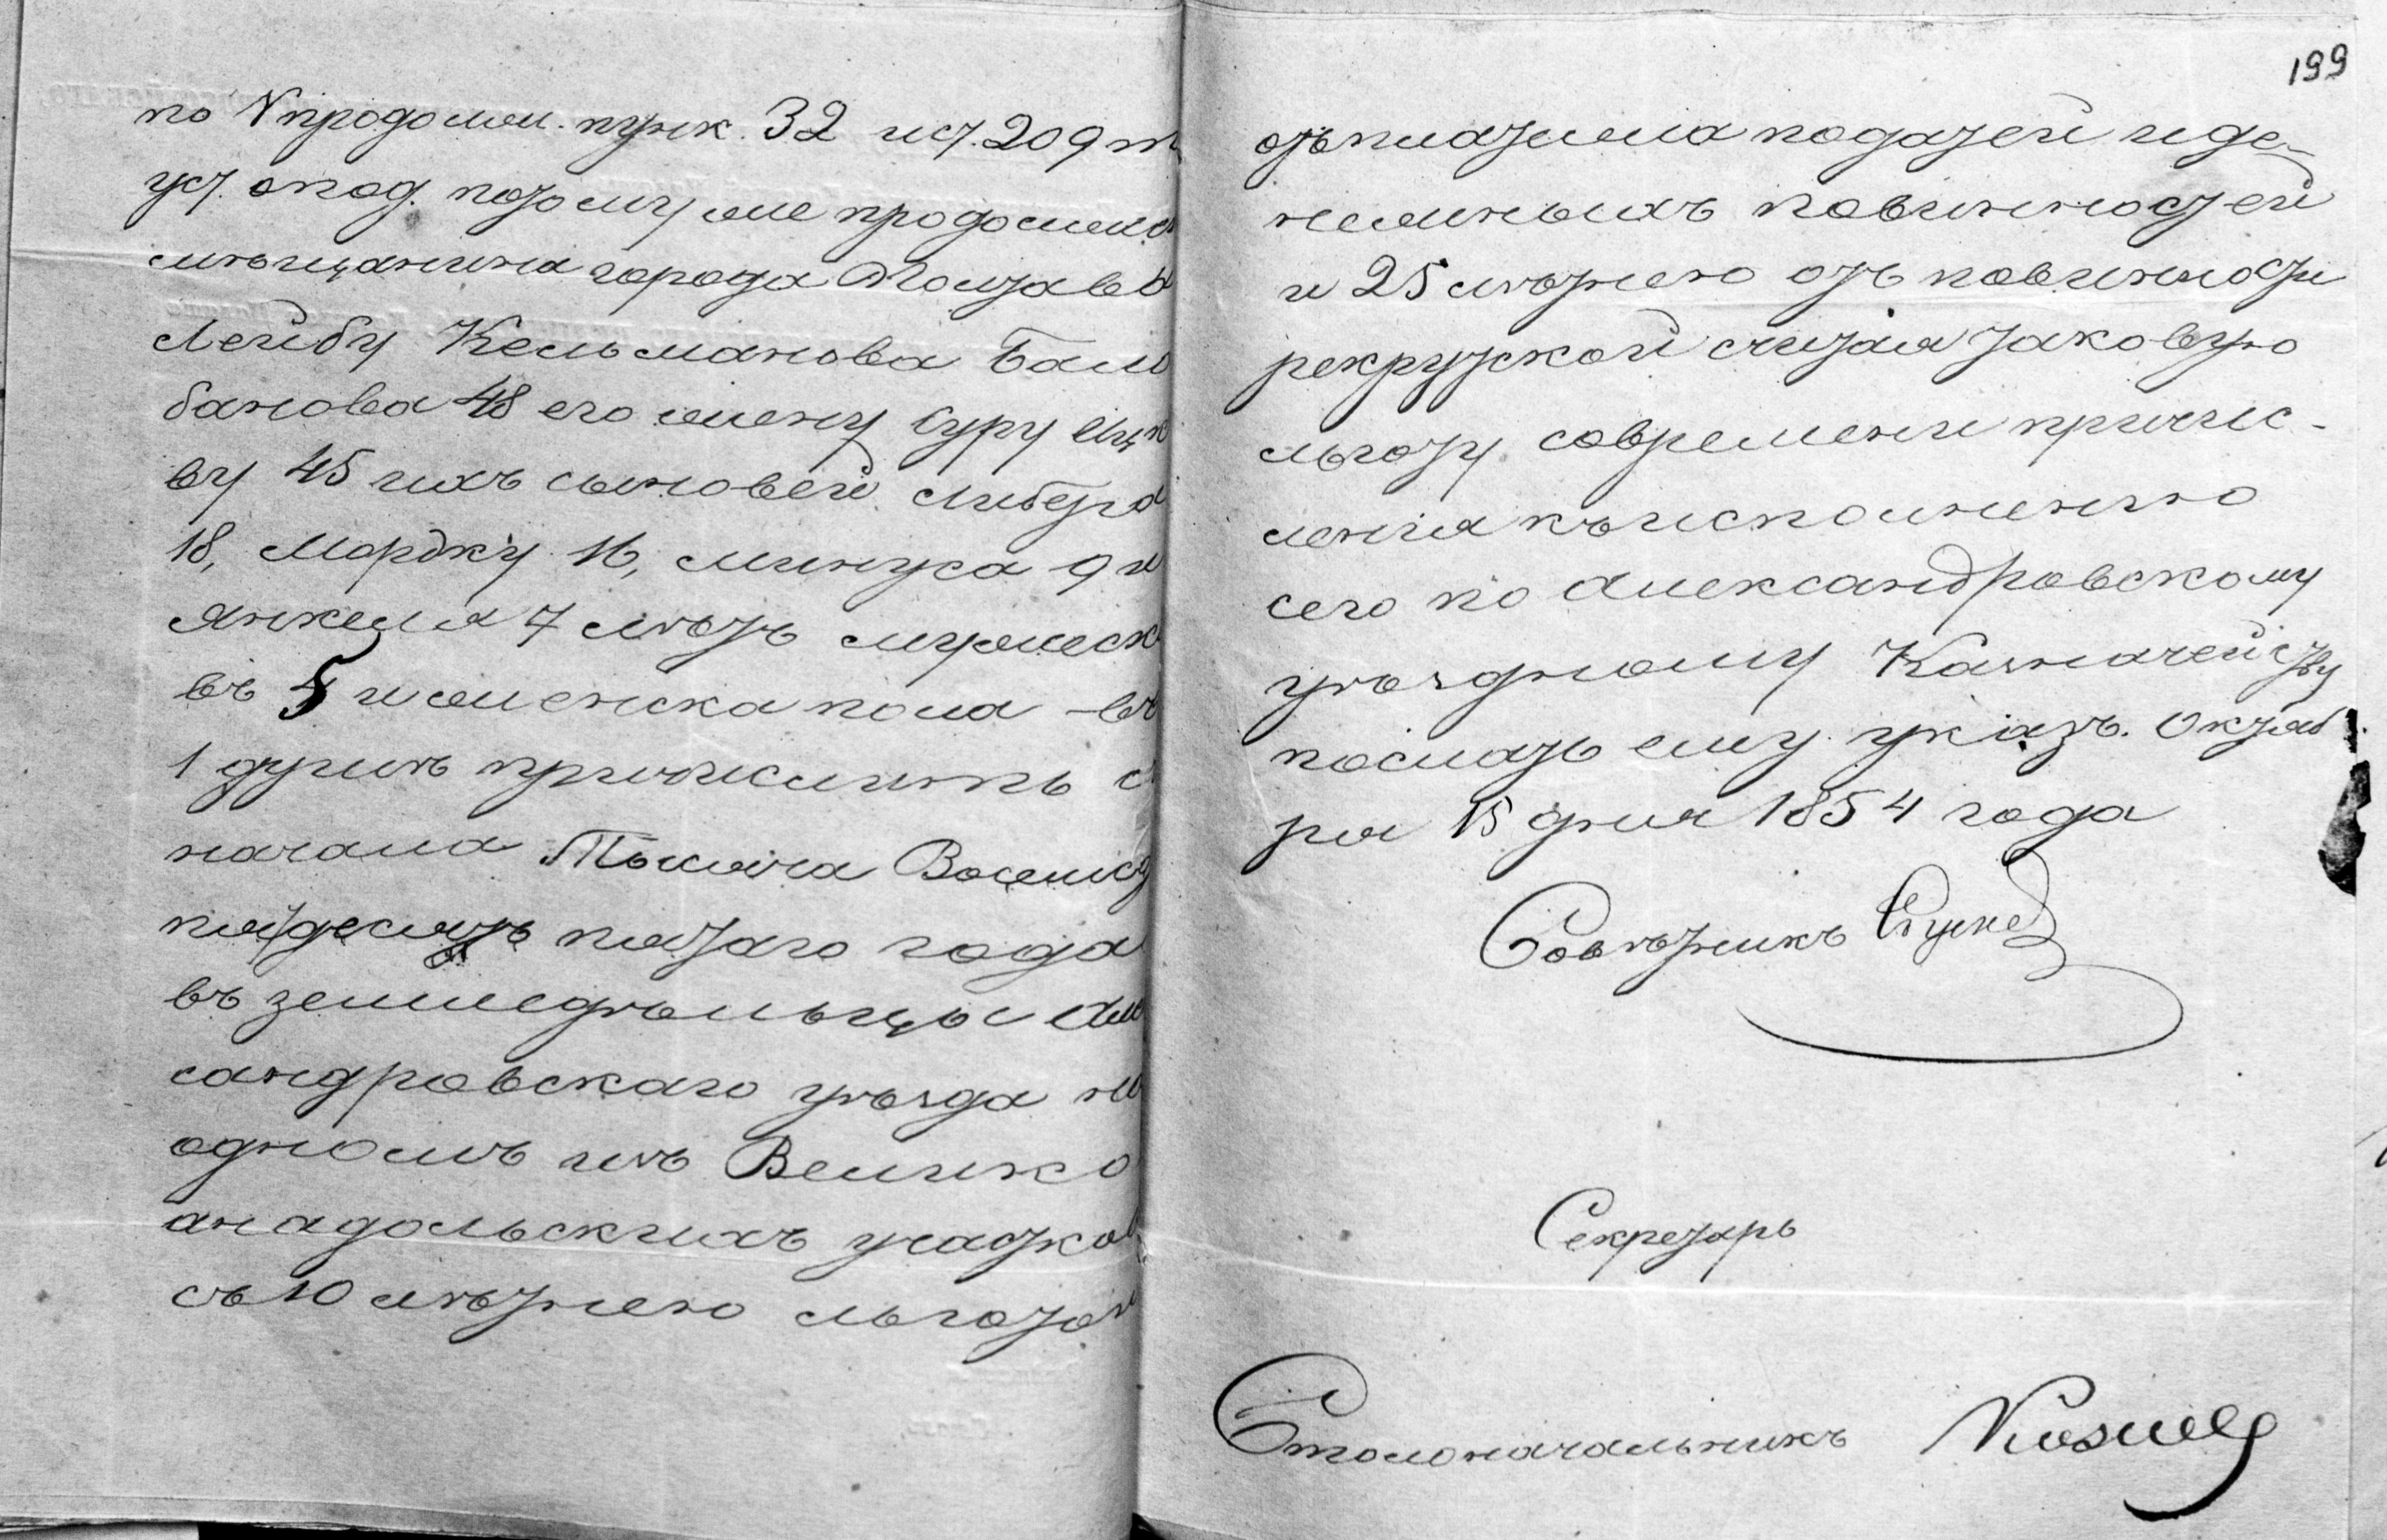 199
по V продолж. пунк. 32 и ст. 209 т
уст. о под. потому же продолже
мѣщанина города Полтавы
Лейбу Кельманова Бала
банова 48 его жену Суру
ву 45 ихъ сыновей Либера
18, Мордку 16, Минуса 9 и
Янкеля 7 лѣтъ мужеск
въ 5 и женска пола въ
1 душѣ причислить съ
начала Тысяча Восемсот
пятдесятъ пятаго года
въ земледѣльцы Алек
сандровскаго уѣзда на
одномъ изъ Велико
анадольскихъ участков
съ 10 лѣтнею льготою
отъ платежа податей и де-
нежныхъ повинностей
и 25 лѣтнею отъ повинности
рекрутской считая таковую
льготу со времени причис-
ленія къ исполненію
сего по Александровскому
уѣздному Казначейству
послать ему указъ. Октяб
ря 15 дня 1854 года
Совѣтникъ
Секретарь
Столоначальникъ